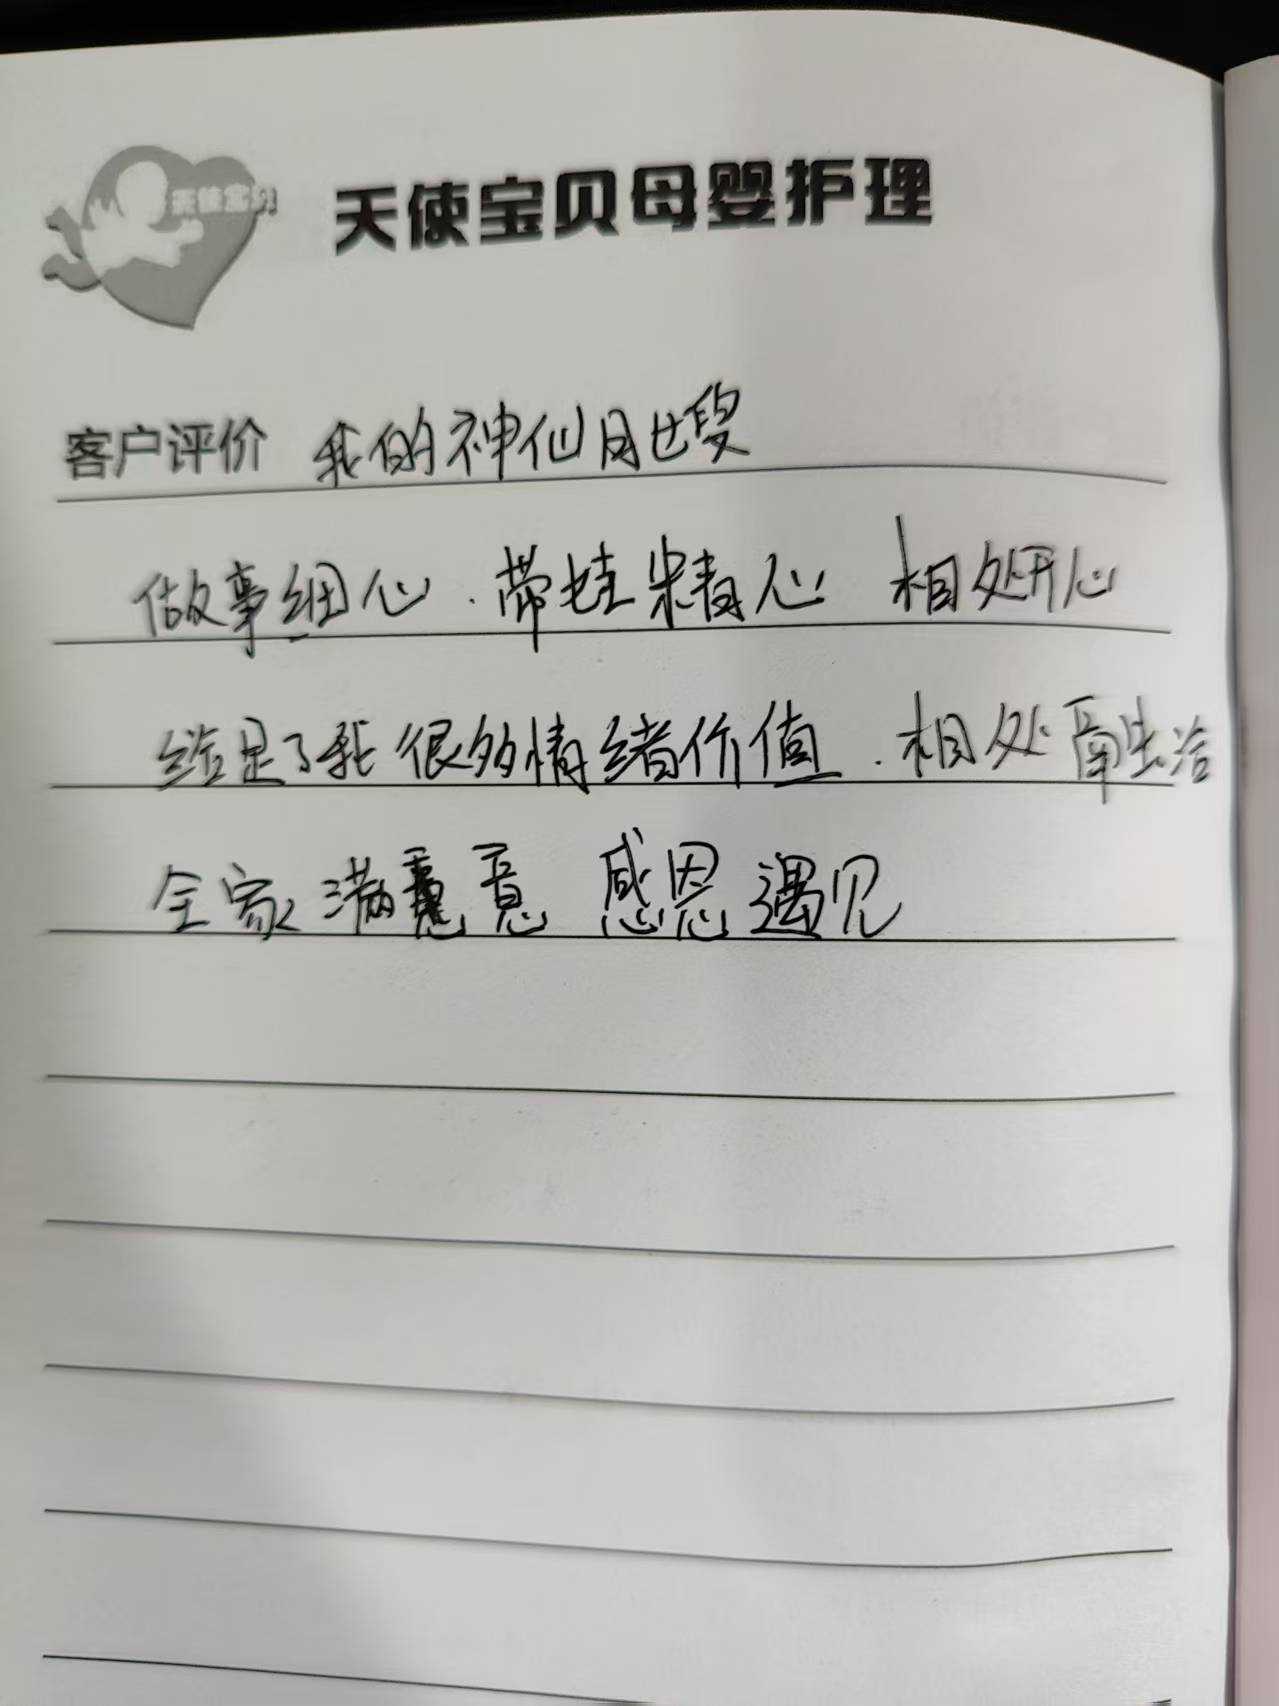 天使宝贝
天使宝贝母婴护理
客户评价 我的神仙月嫂
做事细心.带娃精心 相处开心
给足了我很多情绪价值.相处融洽
全家满意 感恩遇见